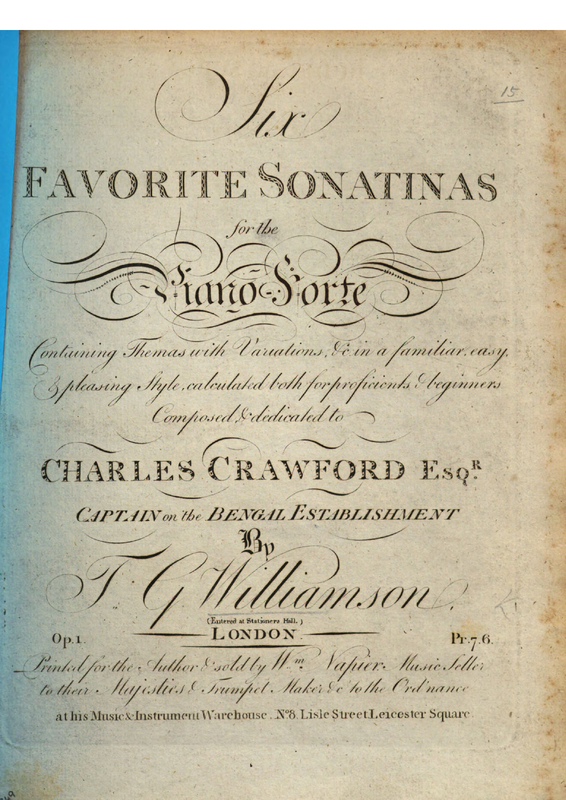 15
Six
FAVORITE SONATINAS
for the
Piano-Forte
Containing Themas with Variations, &c in a familiar, easy,
& pleasing Style, calculated both for proficients & beginners
Composed & dedicated to
CHARLES CRAWFORD ESQ.R
CAPTAIN on the BENGAL ESTABLISHMENT
By
T. G. Williamson.
(Entered at Stationers Hall.)
LONDON
Op.1. Pr.7.6.
Printed for the Author & sold by Wm. Napier Music Seller
to their Majesties & Trumpet Maker &c to the Ord'nance
at his Music & Instrument Warehouse. No8. Lisle Street Leicester Square.